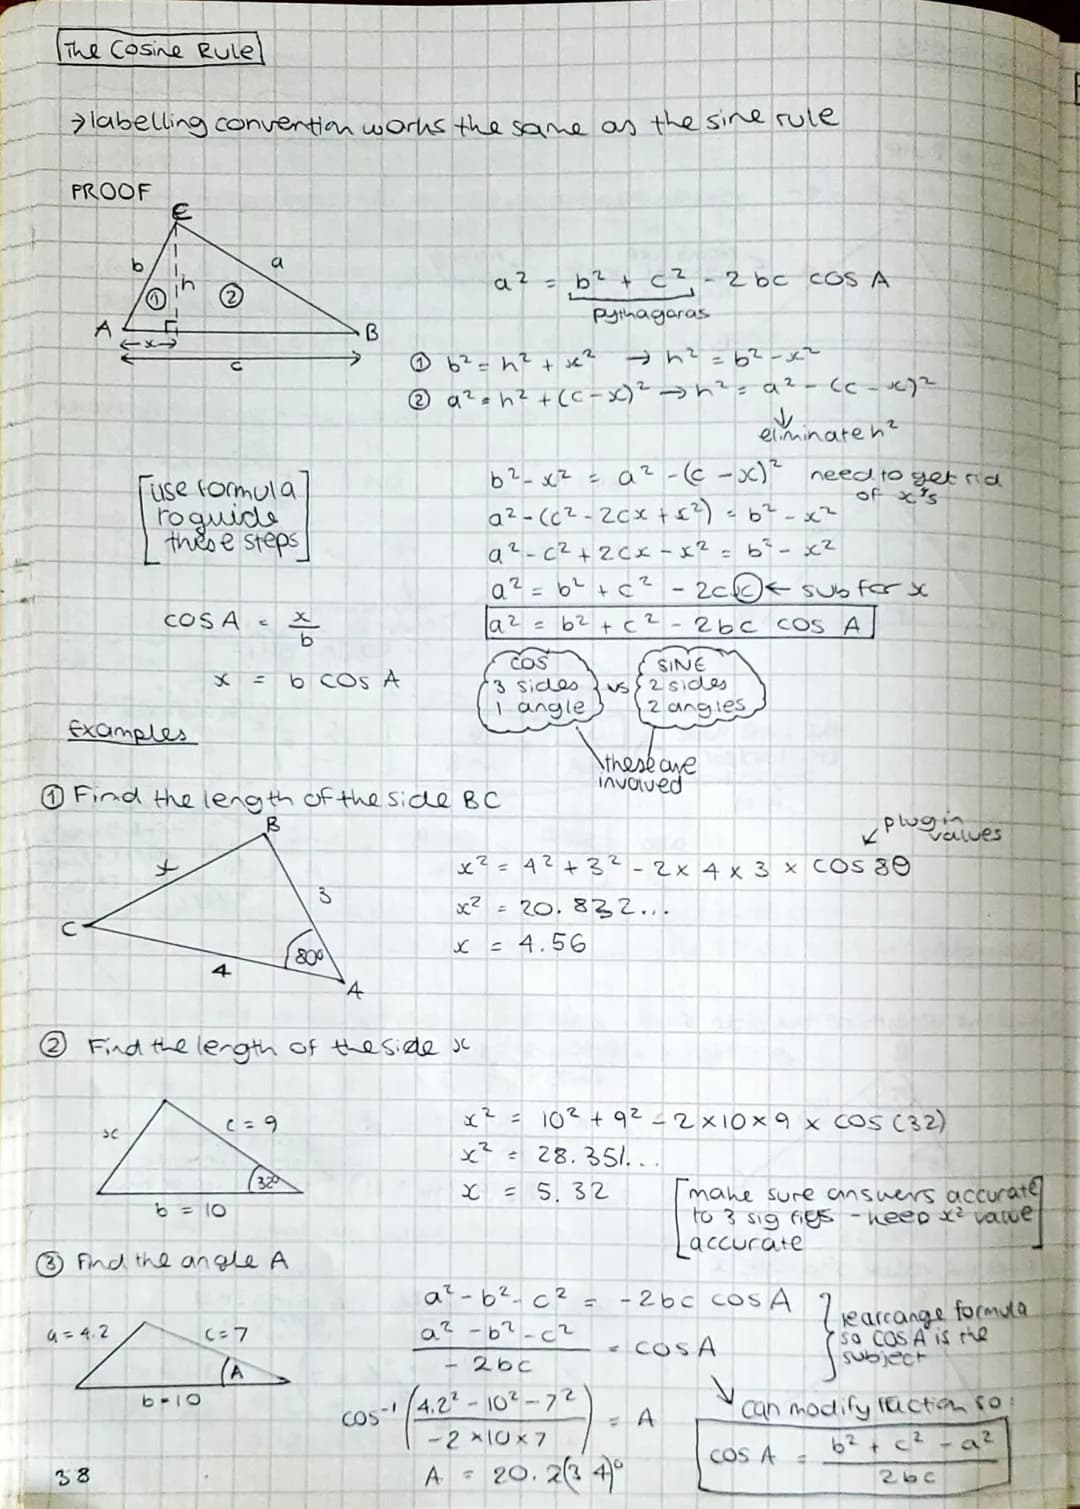 The Cosine Rule
→ labelling convention works the same as the sine rule
PROOF
C
b
a
h
① ②
A
B
x
c
a² = b² + c² - 2bc cos A
Pythagoras
① b² = h² + x² → h² = b² - x²
② a² = h² + (c-x)² → h² = a² - (c-x)²
eliminate h²
b² - x² = a² - (c-x)² need to get rid of x's
[use formula to guide these steps]
a² - (c² - 2cx + x²) = b² - x²
a² - c² + 2cx - x² = b² - x²
a² = b² + c² - 2cx ← sub for x
a² = b² + c² - 2bc cos A
cos A = x/b
x = b cos A
COS
3 sides
1 angle
vs
SINE
2 sides
2 angles
these are
involved
Examples
① Find the length of the side BC
B
x
3
C
4
80°
A
plug in
values
x² = 4² + 3² - 2 x 4 x 3 x cos 80
x² = 20.832...
x = 4.56
② Find the length of the side x
x
c = 9
32°
b = 10
x² = 10² + 9² - 2 x 10 x 9 x cos (32)
x² = 28.351...
x = 5.32
[make sure answers accurate
to 3 sig figs - keep x² value
accurate]
③ Find the angle A
a = 4.2
c = 7
A
b = 10
a² - b² - c² = -2bc cos A
(a² - b² - c²)/(-2bc) = cos A
rearrange formula
so cos A is the
subject
cos⁻¹ ((4.2² - 10² - 7²)/(-2 x 10 x 7)) = A
A = 20.2(34)°
can modify fraction so:
cos A = (b² + c² - a²)/(2bc)
38